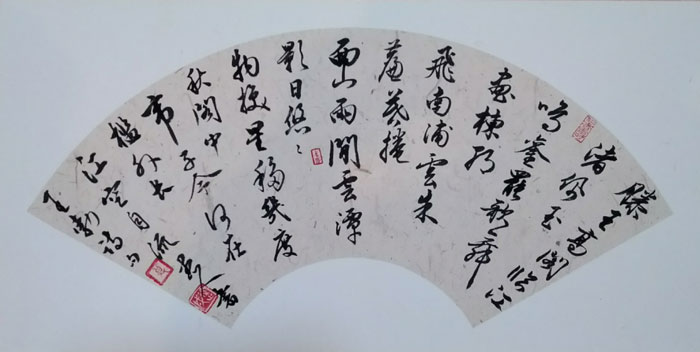 滕王高閣臨江
渚佩玉
鳴鑾罷歌舞
畫棟朝
飛南浦雲朱
簾暮捲
西山雨閒雲潭
影日悠〻
物換星移幾度
秋閣中
帝子今何在
檻外長
江空自流
王勃詩句
書